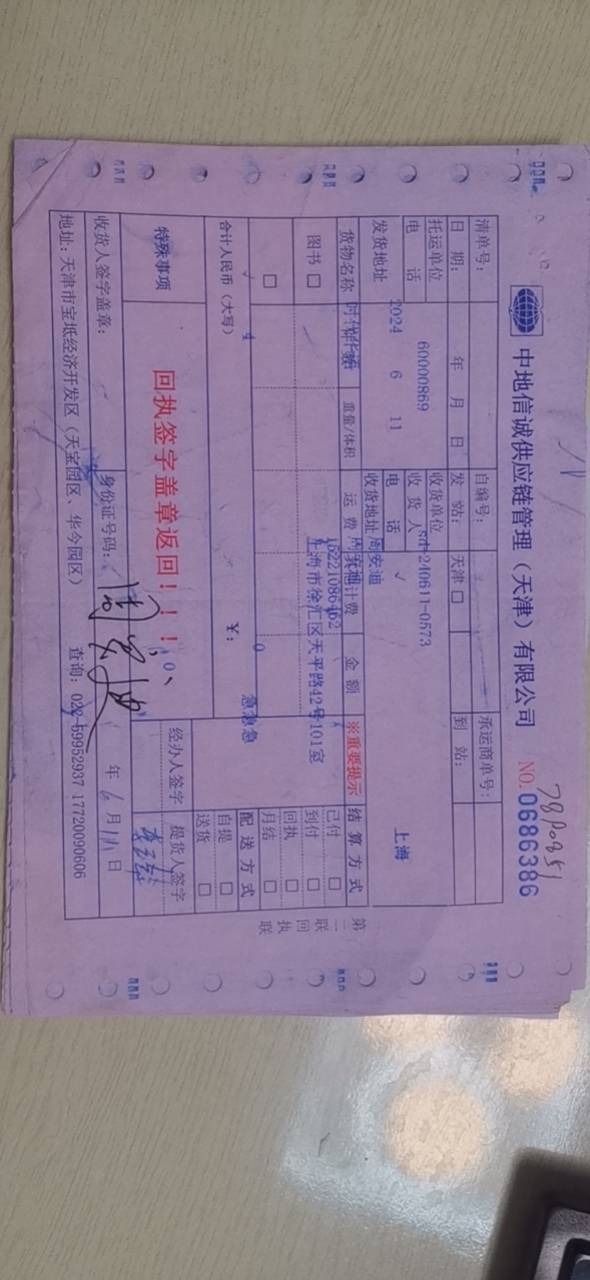 中地信诚供应链管理（天津）有限公司 NO. 0686386
清单号： 自编号： 承运商单号：
日 期： 年 月 日 发 站： 天津 □ 到 站：
托运单位 60000869 收货单位 240611-0573
电 话 收 货 人
2024 6 11 电 话 上海
发货地址 收货地址 周安迪
货物名称 重量/体积 运 费 计费 金 额 ※重要提示 结 算 方 式
时代华语
上海市徐汇区天平路42号101室
图书 □ 已付 □
到付 □
□ 回执 □
月结 □
急急急
合计人民币（大写） ¥： 配 送 方 式
自提 □
送货 □
特殊事项 回执签字盖章返回！！！ 经办人签字 提货人签字
收货人签字盖章： 身份证号码： 年 6 月 11 日
地址：天津市宝坻经济开发区（天宝园区、华今园区） 查询：022-59952937 17720090606
第二联 回执联